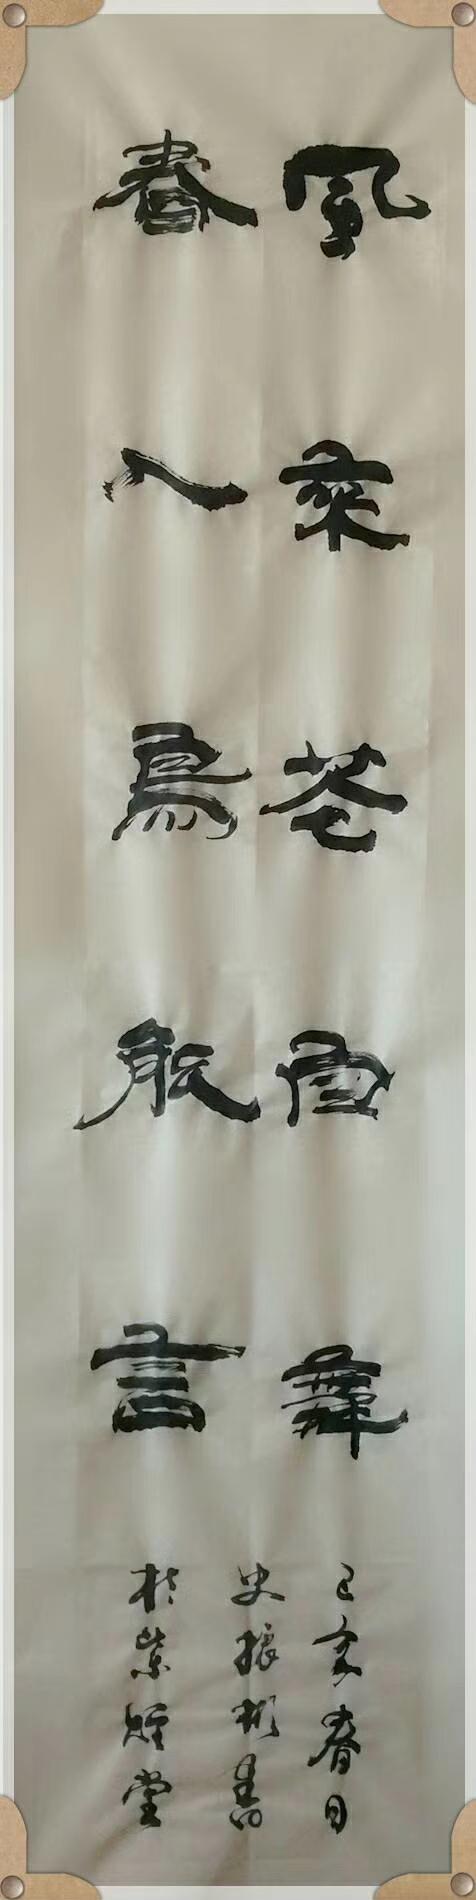 風來花自舞
春入鳥能言
己亥春日
史振書
於紫堂